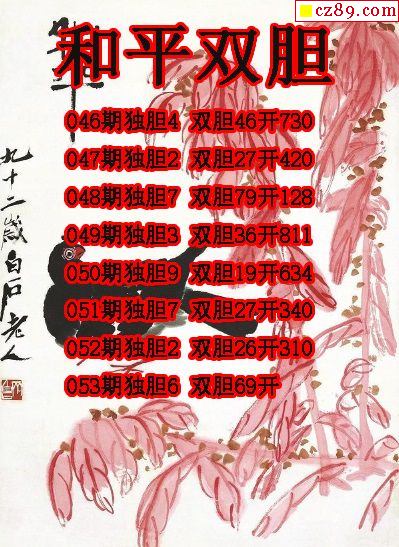 cz89.com
和平双胆
046期独胆4 双胆46开730
047期独胆2 双胆27开420
048期独胆7 双胆79开128
049期独胆3 双胆36开811
050期独胆9 双胆19开634
051期独胆7 双胆27开340
052期独胆2 双胆26开310
053期独胆6 双胆69开
九十二歲白石老人